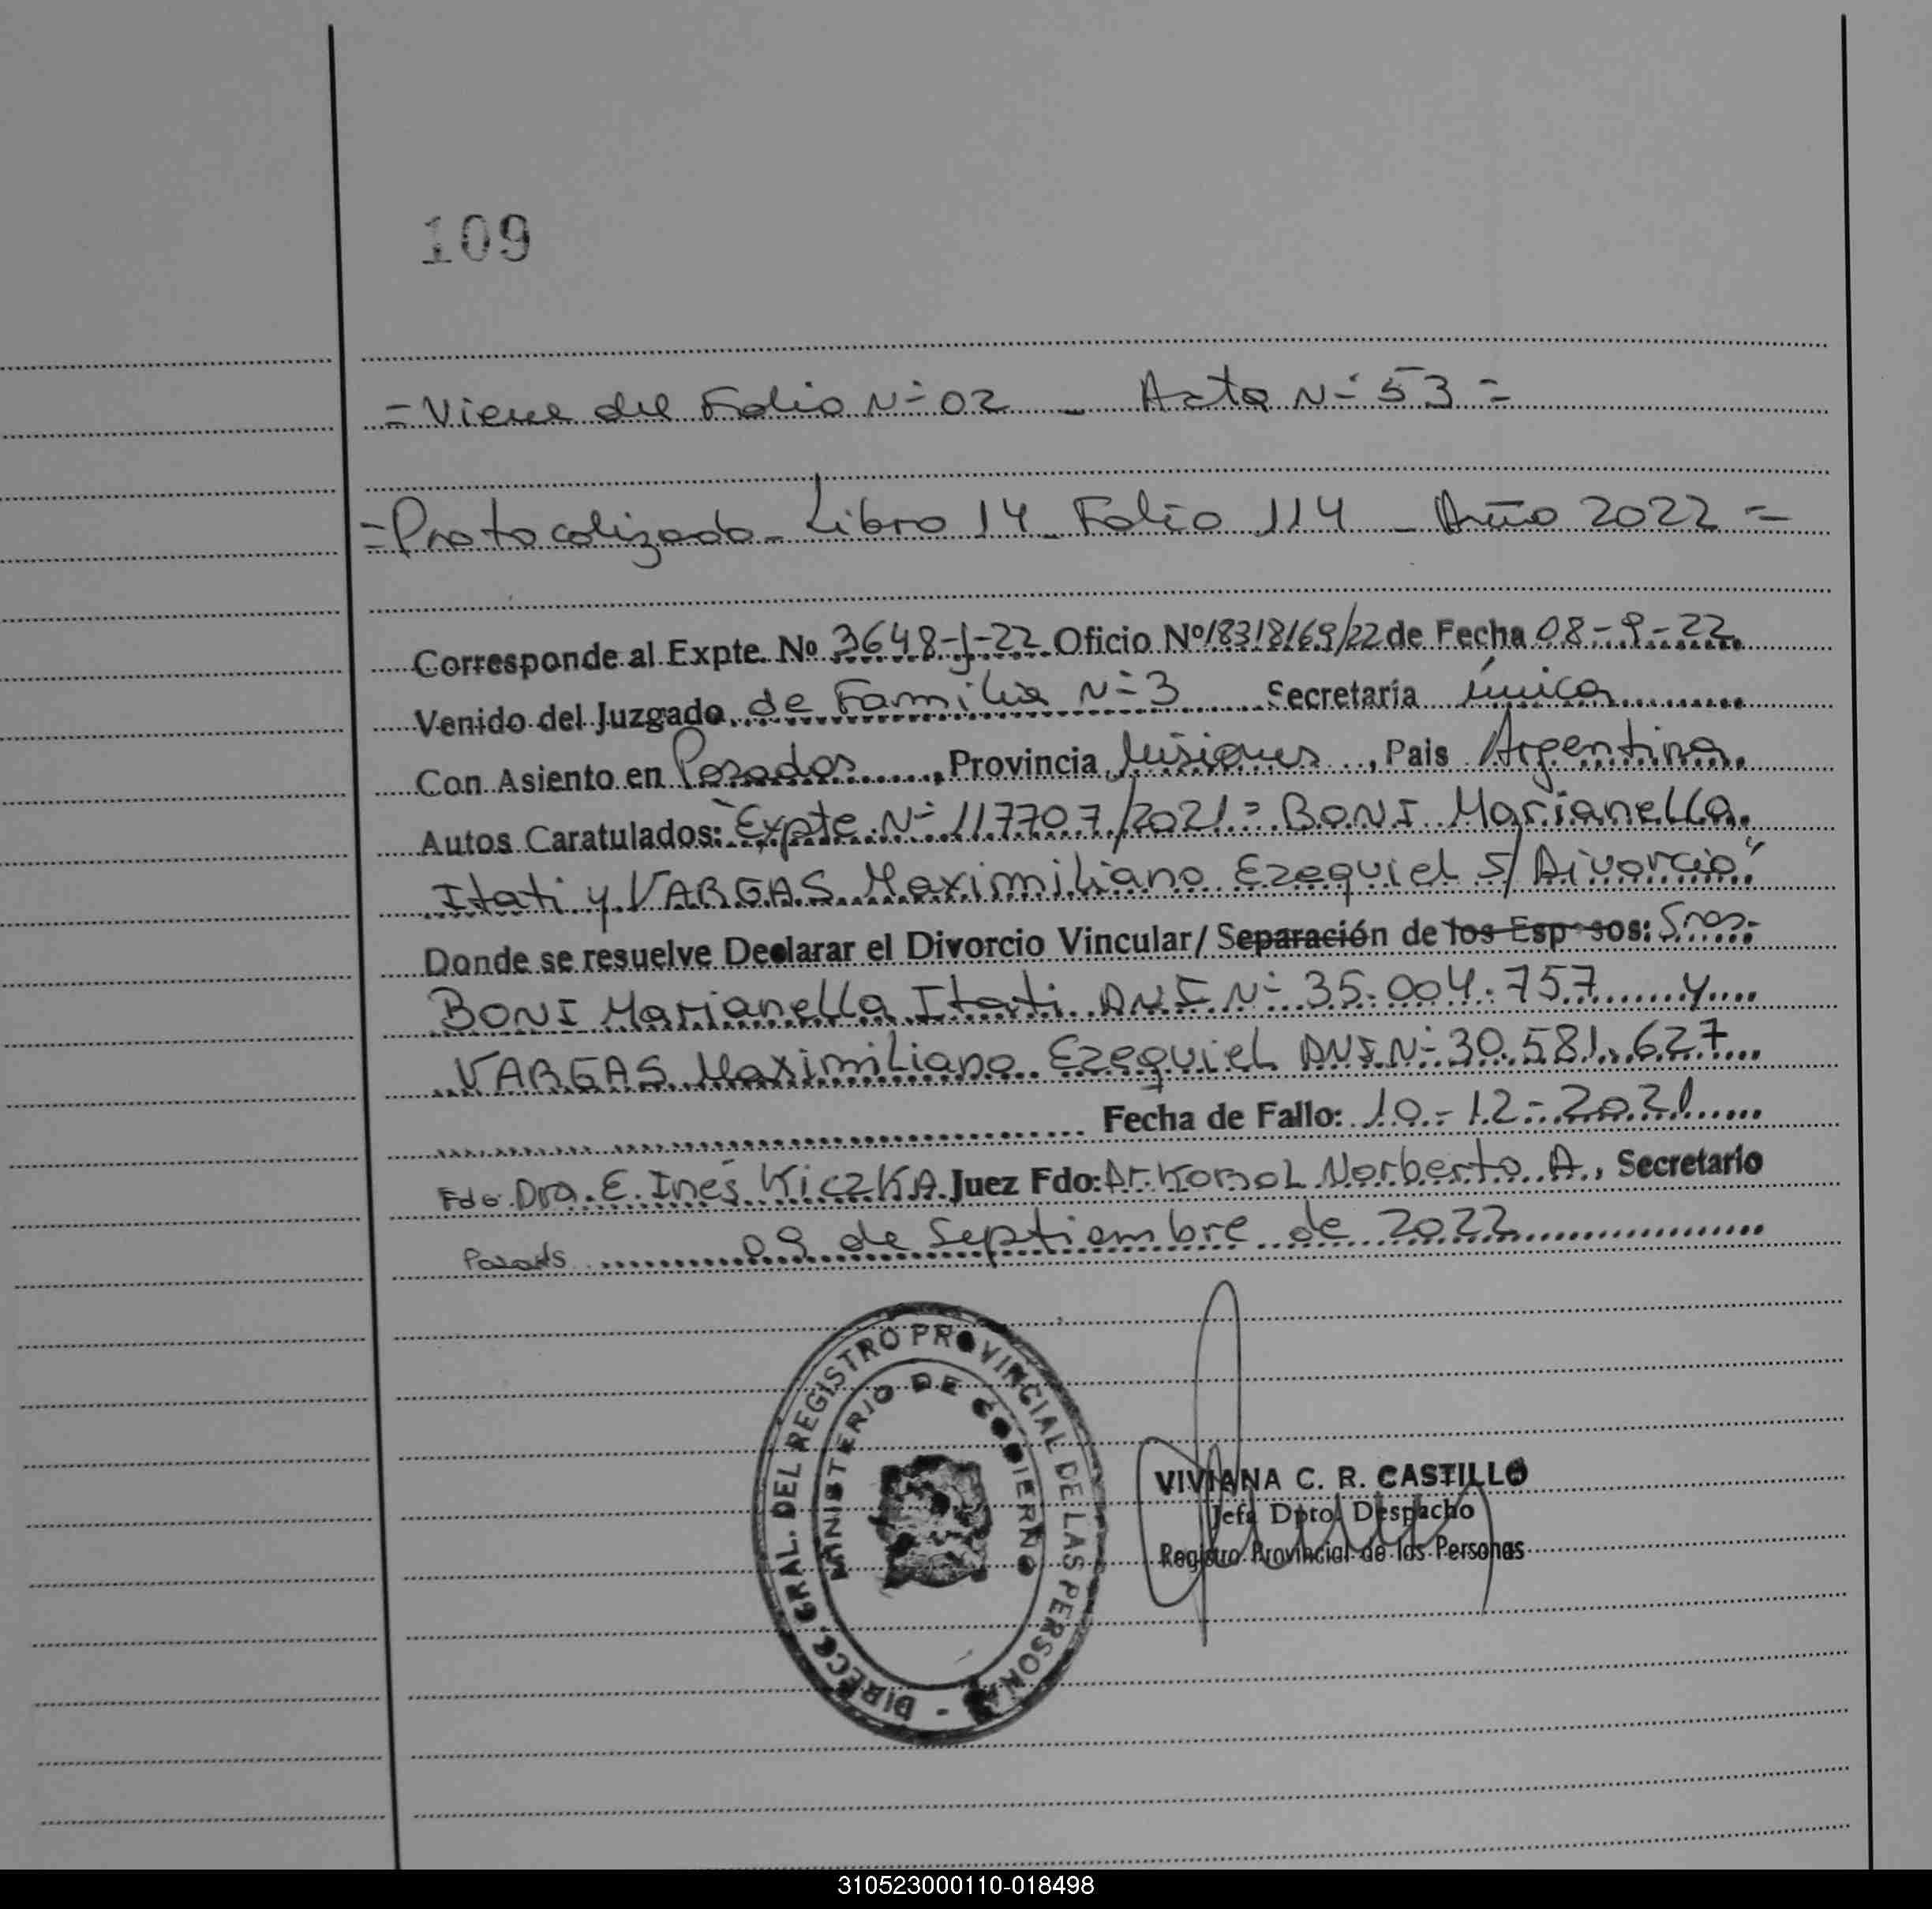 109
= Viene del Folio Nº 02 - Acta Nº 53 =
= Protocolizado - Libro 14 - Folio 114 - Año 2022 =
Corresponde al Expte. Nº 3648-J-22 Oficio Nº 18318169/22 de Fecha 08-9-22.
Venido del Juzgado de Familia Nº 3 Secretaría única
Con Asiento en Posadas, Provincia Misiones, Pais Argentina.
Autos Caratulados: "Expte. Nº 117707/2021: BONI Marianella.
Itati y VARGAS Maximiliano Ezequiel S/ Divorcio"
Donde se resuelve Declarar el Divorcio Vincular/ Separación de los Esposos: Sres.
BONI Marianella Itati DNI Nº 35.004.757 y
VARGAS Maximiliano Ezequiel DNI Nº 30.581.627
Fecha de Fallo: 10-12-2021
Fdo. Dra. E. Inés KiczKA Juez Fdo: Dr. Korsol Norberto A., Secretario
Posadas 09 de Septiembre de 2022
DIRECC. GRAL. DEL REGISTRO PROVINCIAL DE LAS PERSONAS -
MINISTERIO DE GOBIERNO
VIVIANA C. R. CASTILLO
Jefa Dpto. Despacho
Registro Provincial de las Personas
310523000110-018498